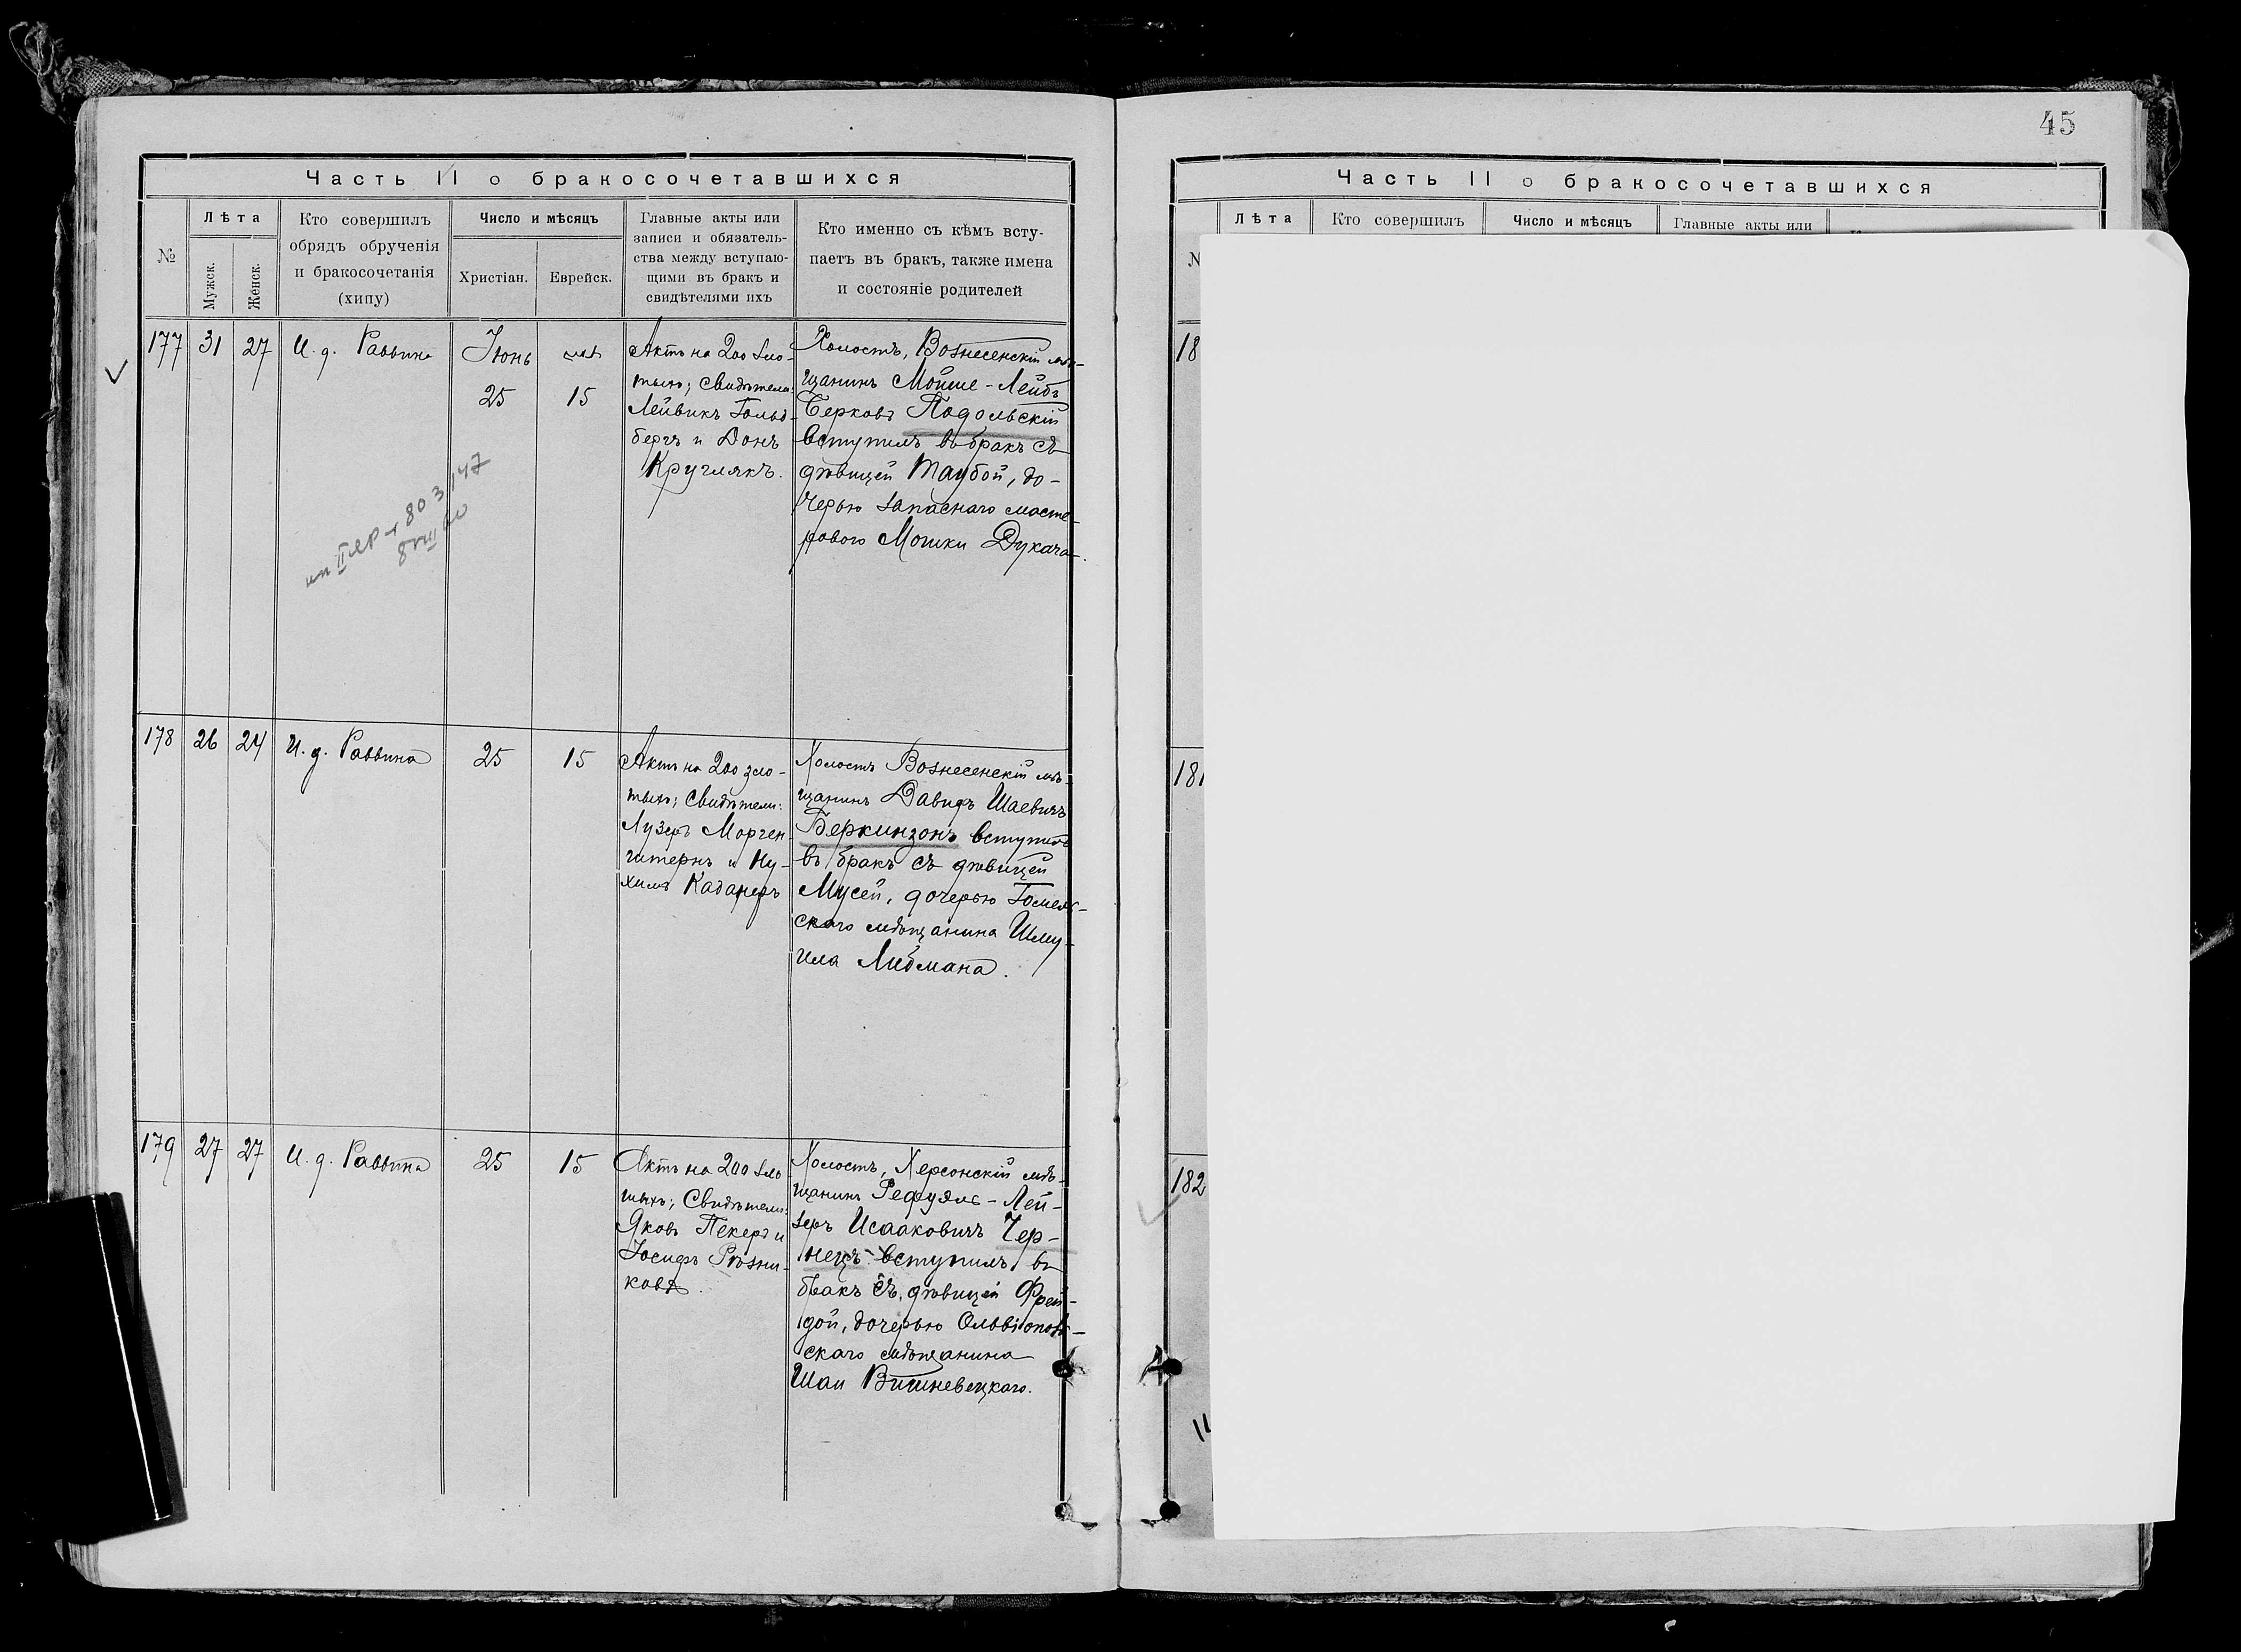 45
Часть II о бракосочетавшихся
№
Лѣта
Мужск.
Женск.
Кто совершилъ
обрядъ обрученія
и бракосочетанія
(хипу)
Число и мѣсяцъ
Христіан.
Еврейск.
Главные акты или
записи и обязатель-
ства между вступаю-
щими въ бракъ и
свидѣтелями ихъ
Кто именно съ кѣмъ всту-
паетъ въ бракъ, также имена
и состояніе родителей
177
31
27
И. д. Раввина
Іюнь
25
15
Актъ на 200 зло-
тыхъ; Свидѣтели:
Лейвикъ Гольд-
бергъ и Донъ
Круглякъ.
Холостъ, Вознесенскій мѣ-
щанинъ Мойше-Лейбъ
Берковъ Подольскій
вступилъ въ бракъ съ
дѣвицей Таубой, до-
черью запаснаго масте-
рового Мошки Дукача.
803147
178
26
24
И. д. Раввина
25
15
Актъ на 200 зло-
тыхъ; Свидѣтели:
Лузеръ Морген-
штернъ и Ну-
химъ Каданеръ
Холостъ Вознесенскій мѣ-
щанинъ Давидъ Шаевичъ
Беркинзонъ вступилъ
въ бракъ съ дѣвицей
Мусей, дочерью Гомель-
скаго мѣщанина Шму-
ила Либмана.
179
27
27
И. д. Раввина
25
15
Актъ на 200 зло
тыхъ; Свидѣтели:
Яковъ Пекеръ и
Іосифъ Рѣзни-
ковъ.
Холостъ, Херсонскій мѣ-
щанинъ Рефуэль-Лей-
зеръ Исааковичъ Чер-
нецъ вступилъ въ
бракъ съ дѣвицей Фрей-
дой, дочерью Ольвіополь-
скаго мѣщанина
Шаи Вишневецкаго.
Часть II о бракосочетавшихся
Лѣта
Кто совершилъ
Число и мѣсяцъ
Главные акты или
18
181
182